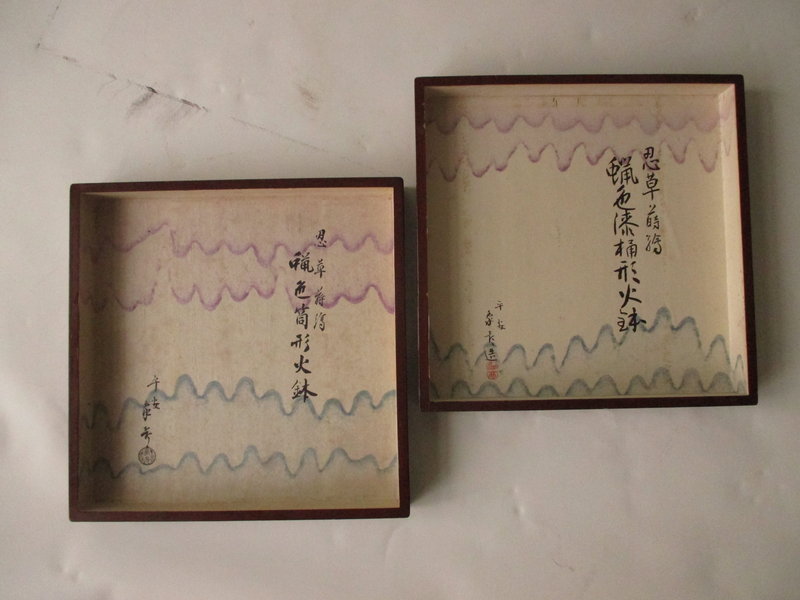 忍草蒔繪
蝋色筒形火鉢
平安
忍草蒔繪
蝋色漆桶形火鉢
平安